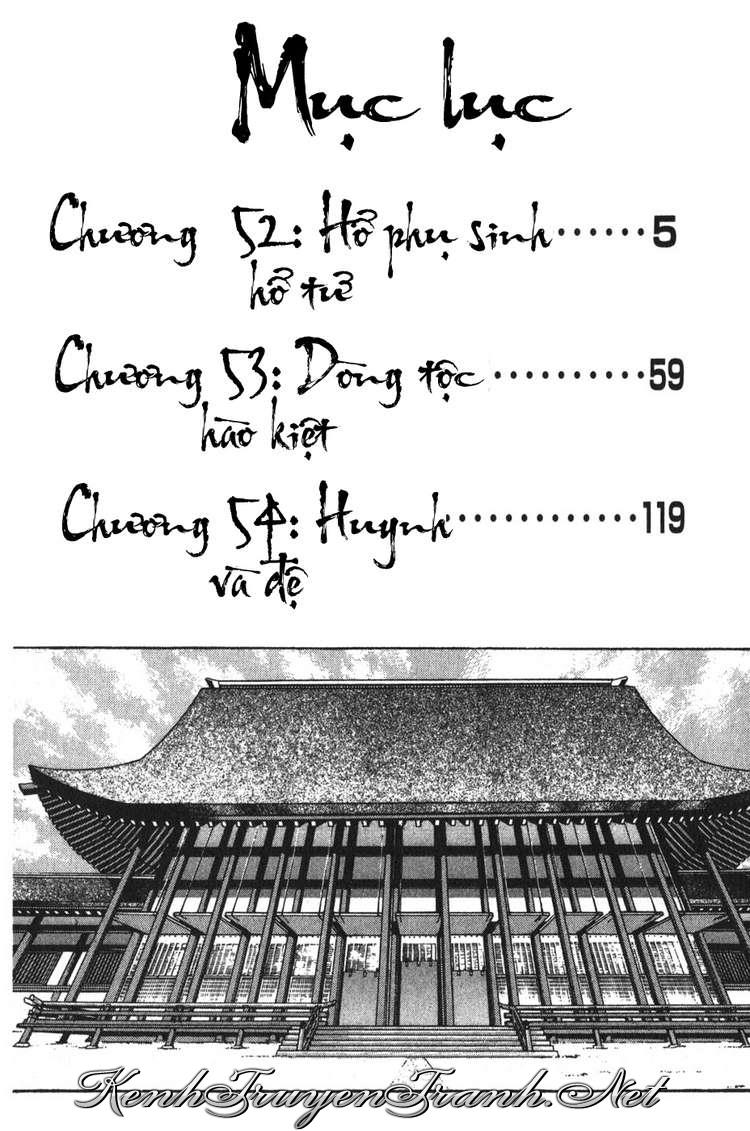 Mục lục
Chương 52: Hổ phụ sinh ...... 5
hổ tử
Chương 53: Dòng tộc .......... 59
hào kiệt
Chương 54: Huynh ............ 119
và đệ
KenhTruyenTranh.Net